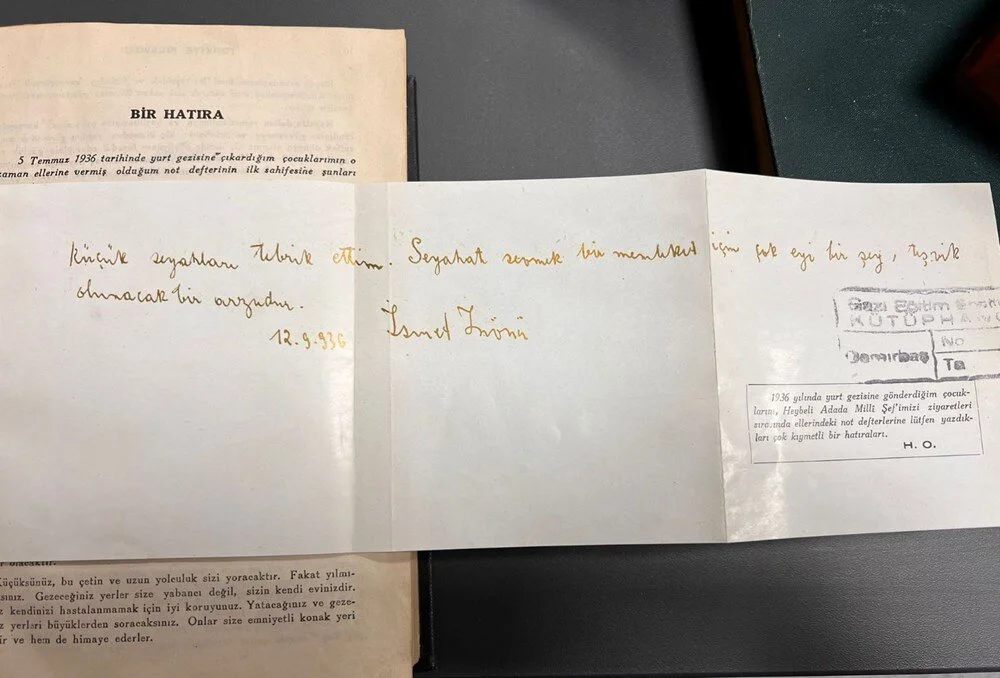 BİR HATIRA
5 Temmuz 1936 tarihinde yurt gezisine çıkardığım çocuklarımın o
zaman ellerine vermiş olduğum not defterinin ilk sahifesine şunları
Küçük seyahları tebrik ettim. Seyahat sevmek bir memleket için çok eyi bir şey, teşvik
olunacak bir arzudur.
12.9.936 İsmet İnönü
Gazi Eğitim
KÜTÜPHAN
Demirbaş
No
Ta
1936 yılında yurt gezisine gönderdiğim çocuk-
ların, Heybeli Adada Millî Şef'imizi ziyaretleri
sırasında ellerindeki not defterlerine lütfen yazdık-
ları çok kıymetli bir hatıraları.
H. O.
olacaktır.
Küçüksünüz, bu çetin ve uzun yolculuk sizi yoracaktır. Fakat yılmı-
sınız. Gezeceğiniz yerler size yabancı değil, sizin kendi evinizdir.
z kendinizi hastalanmamak için iyi koruyunuz. Yatacağınız ve geze-
z yerleri büyüklerden soracaksınız. Onlar size emniyetli konak yeri
ir ve hem de himaye ederler.